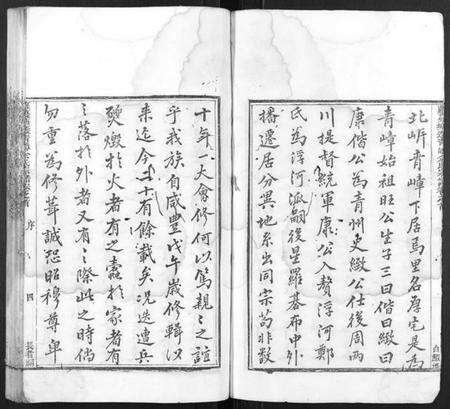 北峏青嶂下居焉里名厚宅是為
青嶂始祖旺公生子三曰偕曰緻曰
康偕公為青州吏緻公仕後周兩
川提督統軍康公入贅浮河鄭
氏為浮河派嗣後星羅碁布中外
播遷居分異地系出同宗苟非數
十年一大會修何以篤親〻之誼
乎我族自咸豐戊午歲修輯以
來迄今二十有餘載矣况迭遭兵
燹燬於火者有之蠹於家者有
〻落於外者又有〻際此之時倘
勿重為修葺誠恐昭穆尊卑
序
四